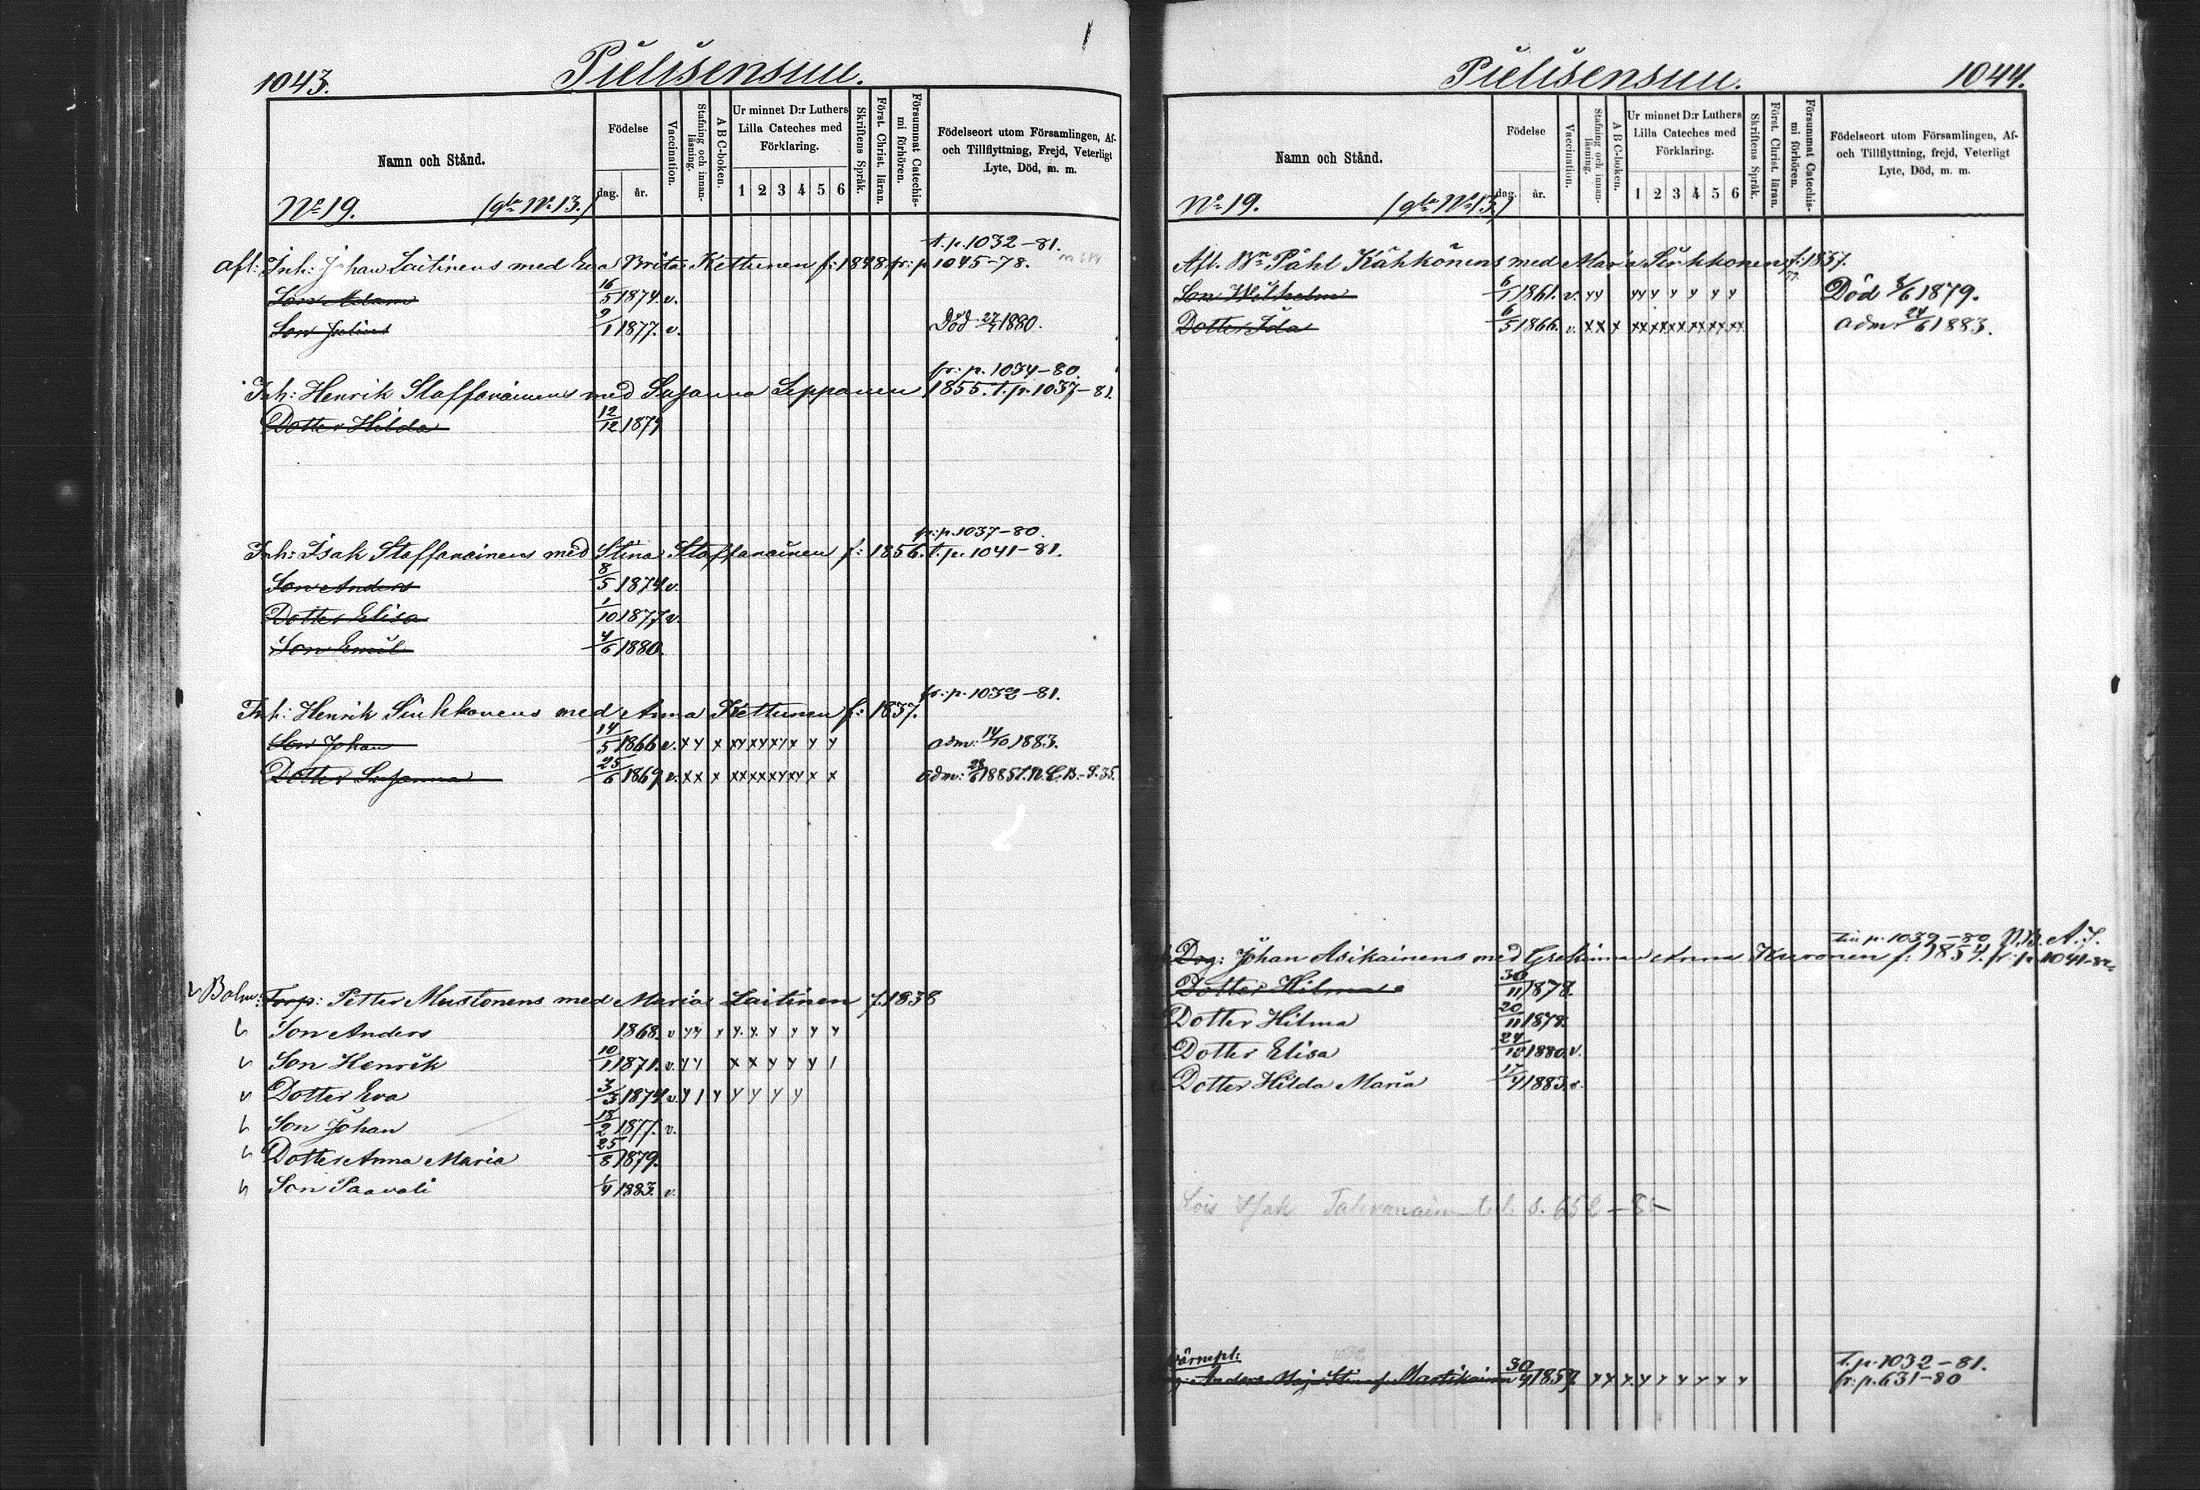 1
1043.
Pielisensuu.
Namn och Stånd.
Födelse
dag.
år.
Vaccination.
Stafning och innanläsning.
A B C-boken.
Ur minnet D:r Luthers Lilla Cateches med Förklaring.
1 2 3 4 5 6
Skriftens Språk.
Först. Christ. läran.
Försummat Catechismi förhören.
Födelseort utom Församlingen, Af- och Tillflyttning, Frejd, Veterligt Lyte, Död, m. m.
No 19. (gla No 13.)
t. p. 1032-81.
Afl: Inh: Johan Laitinens med Eva Brita Kettunen f: 1848 fr: p 1045-78.
Son Adam 16/5 1874. v.
Son Julius 9/1 1877. v. Död 27/4 1880.
fr: p. 1034-80.
Inh: Henrik Staffanainens med Susanna Leppänen 1855. t. p. 1037-81.
Dotter Hilda 12/12 1879
fr: p. 1037-80.
Inh: Isak Staffanainens med Stina Staffanainen f: 1856. t. p. 1041-81.
Son Anders 8/5 1874. v.
Dotter Elisa 1/10 1877. v.
Son Emil 4/6 1880.
fr: p. 1032-81.
Inh: Henrik Sirkkonens med Anna Kettunen f: 1837.
Son Johan 14/5 1866 v. adm: 14/10 1883.
Dotter Susanna 25/6 1869 v. adm: 28/6 1885
Bolm: Torp: Petter Mustonens med Maria Laitinen f. 1838
Son Anders 1868. v
Son Henrik 10/1 1871. v.
Dotter Eva 3/3 1874. v.
Son Johan 15/2 1877. v.
Dotter Anna Maria 25/8 1879.
Son Paavali 1/4 1883. v.
Pielisensuu.
1044.
Namn och Stånd.
Födelse
dag.
år.
Vaccination.
Stafning och innanläsning.
A B C-boken.
Ur minnet D:r Luthers Lilla Cateches med Förklaring.
1 2 3 4 5 6
Skriftens Språk.
Först. Christ. läran.
Försummat Catechismi förhören.
Födelseort utom Församlingen, Af- och Tillflyttning, frejd, Veterligt Lyte, Död, m. m.
No 19. (gla No 13.)
Afl. Bn Påhl Kähkönens med Maria Sirkkonen f: 1837.
Son Wilhelm 6/1 1861. v. Död 8/6 1879.
Dotter Ida 6/5 1866. v. adm. 24/6 1883.
p. 1039-80
Johan Asikainens med Anna Kuronen f. 1854. fr: p. 1041
Dotter Hilma 30/11 1878.
Dotter Hilma 20/11 1878.
Dotter Elisa 24/12 1880. v.
Dotter Hilda Maria 17/4 1883. v.
Lois Isak
s. 652
Värnepl:
t. p. 1032-81.
Anders Martikainen 30/4 1859
fr: p. 631-80